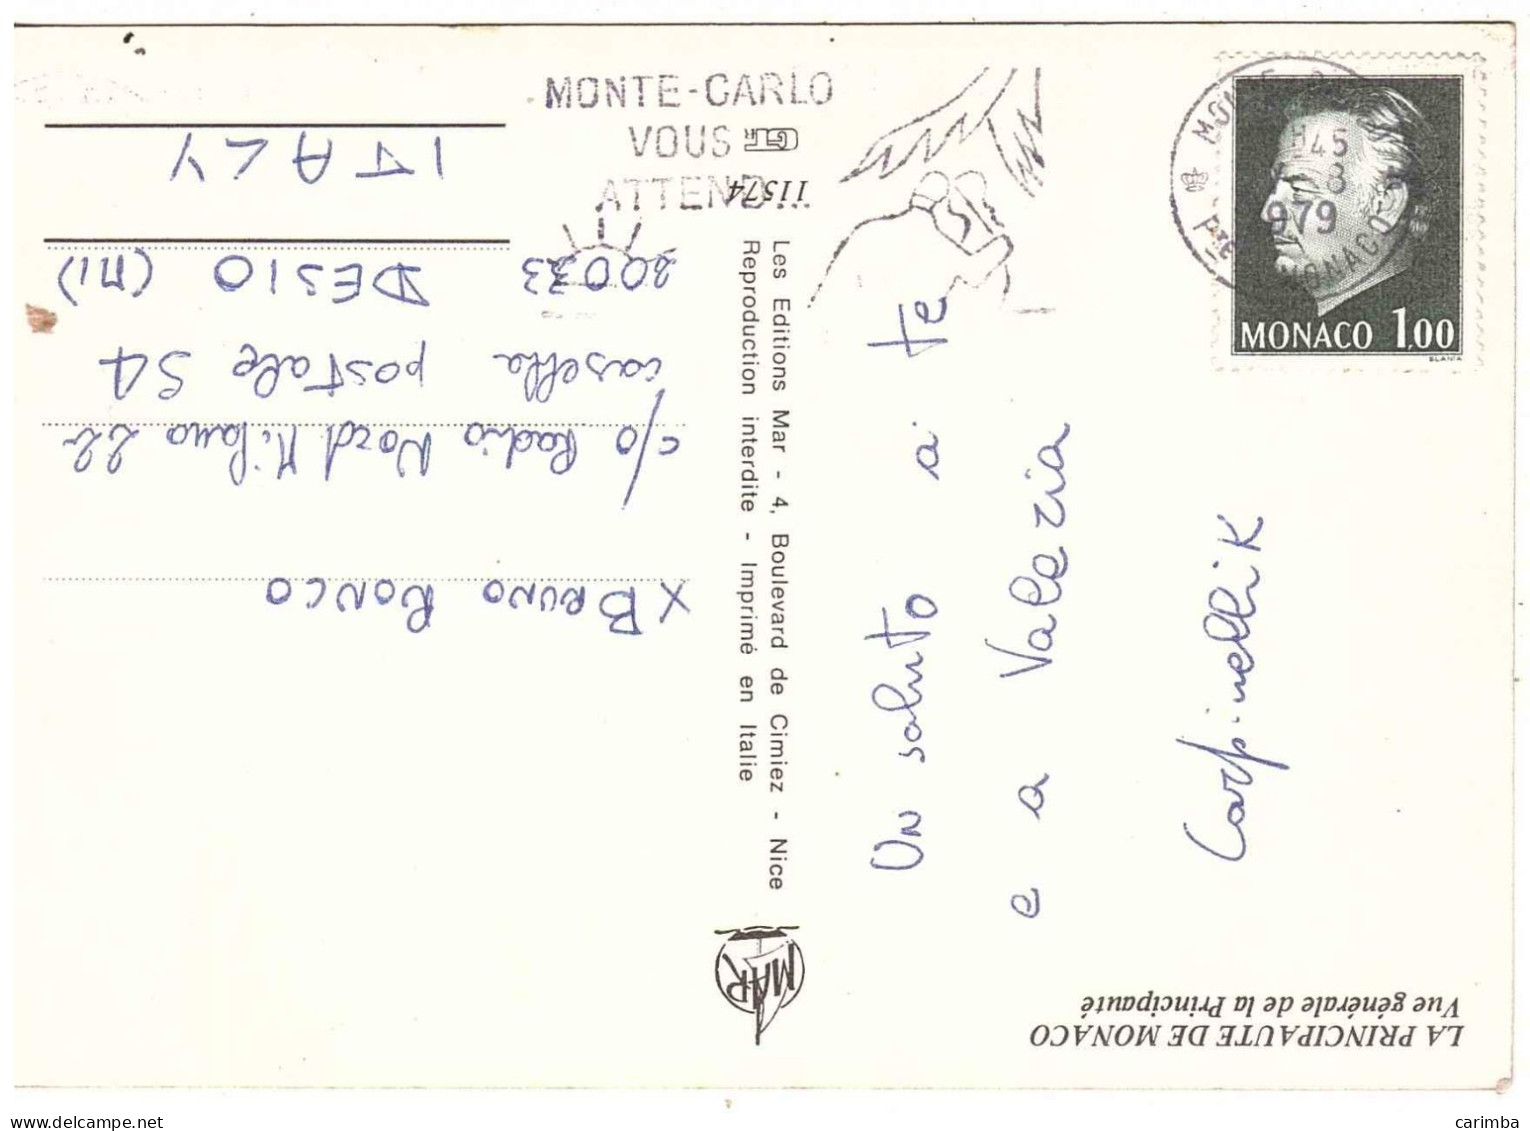 MONTE-CARLO
VOUS
ATTEND
MONACO
1979
MONACO 1,00
SLANIA
LA PRINCIPAUTE DE MONACO
Vue générale de la Principauté
Un saluto a te
e a Valezia
Carpinellik
11574
Les Editions Mar - 4, Boulevard de Cimiez - Nice
Reproduction interdite - Imprimé en Italie
MAR
X BRUNO RONCO
c/o Radio Nord Milano 22
casella postale 54
20033 DESIO (MI)
ITALY
carimba